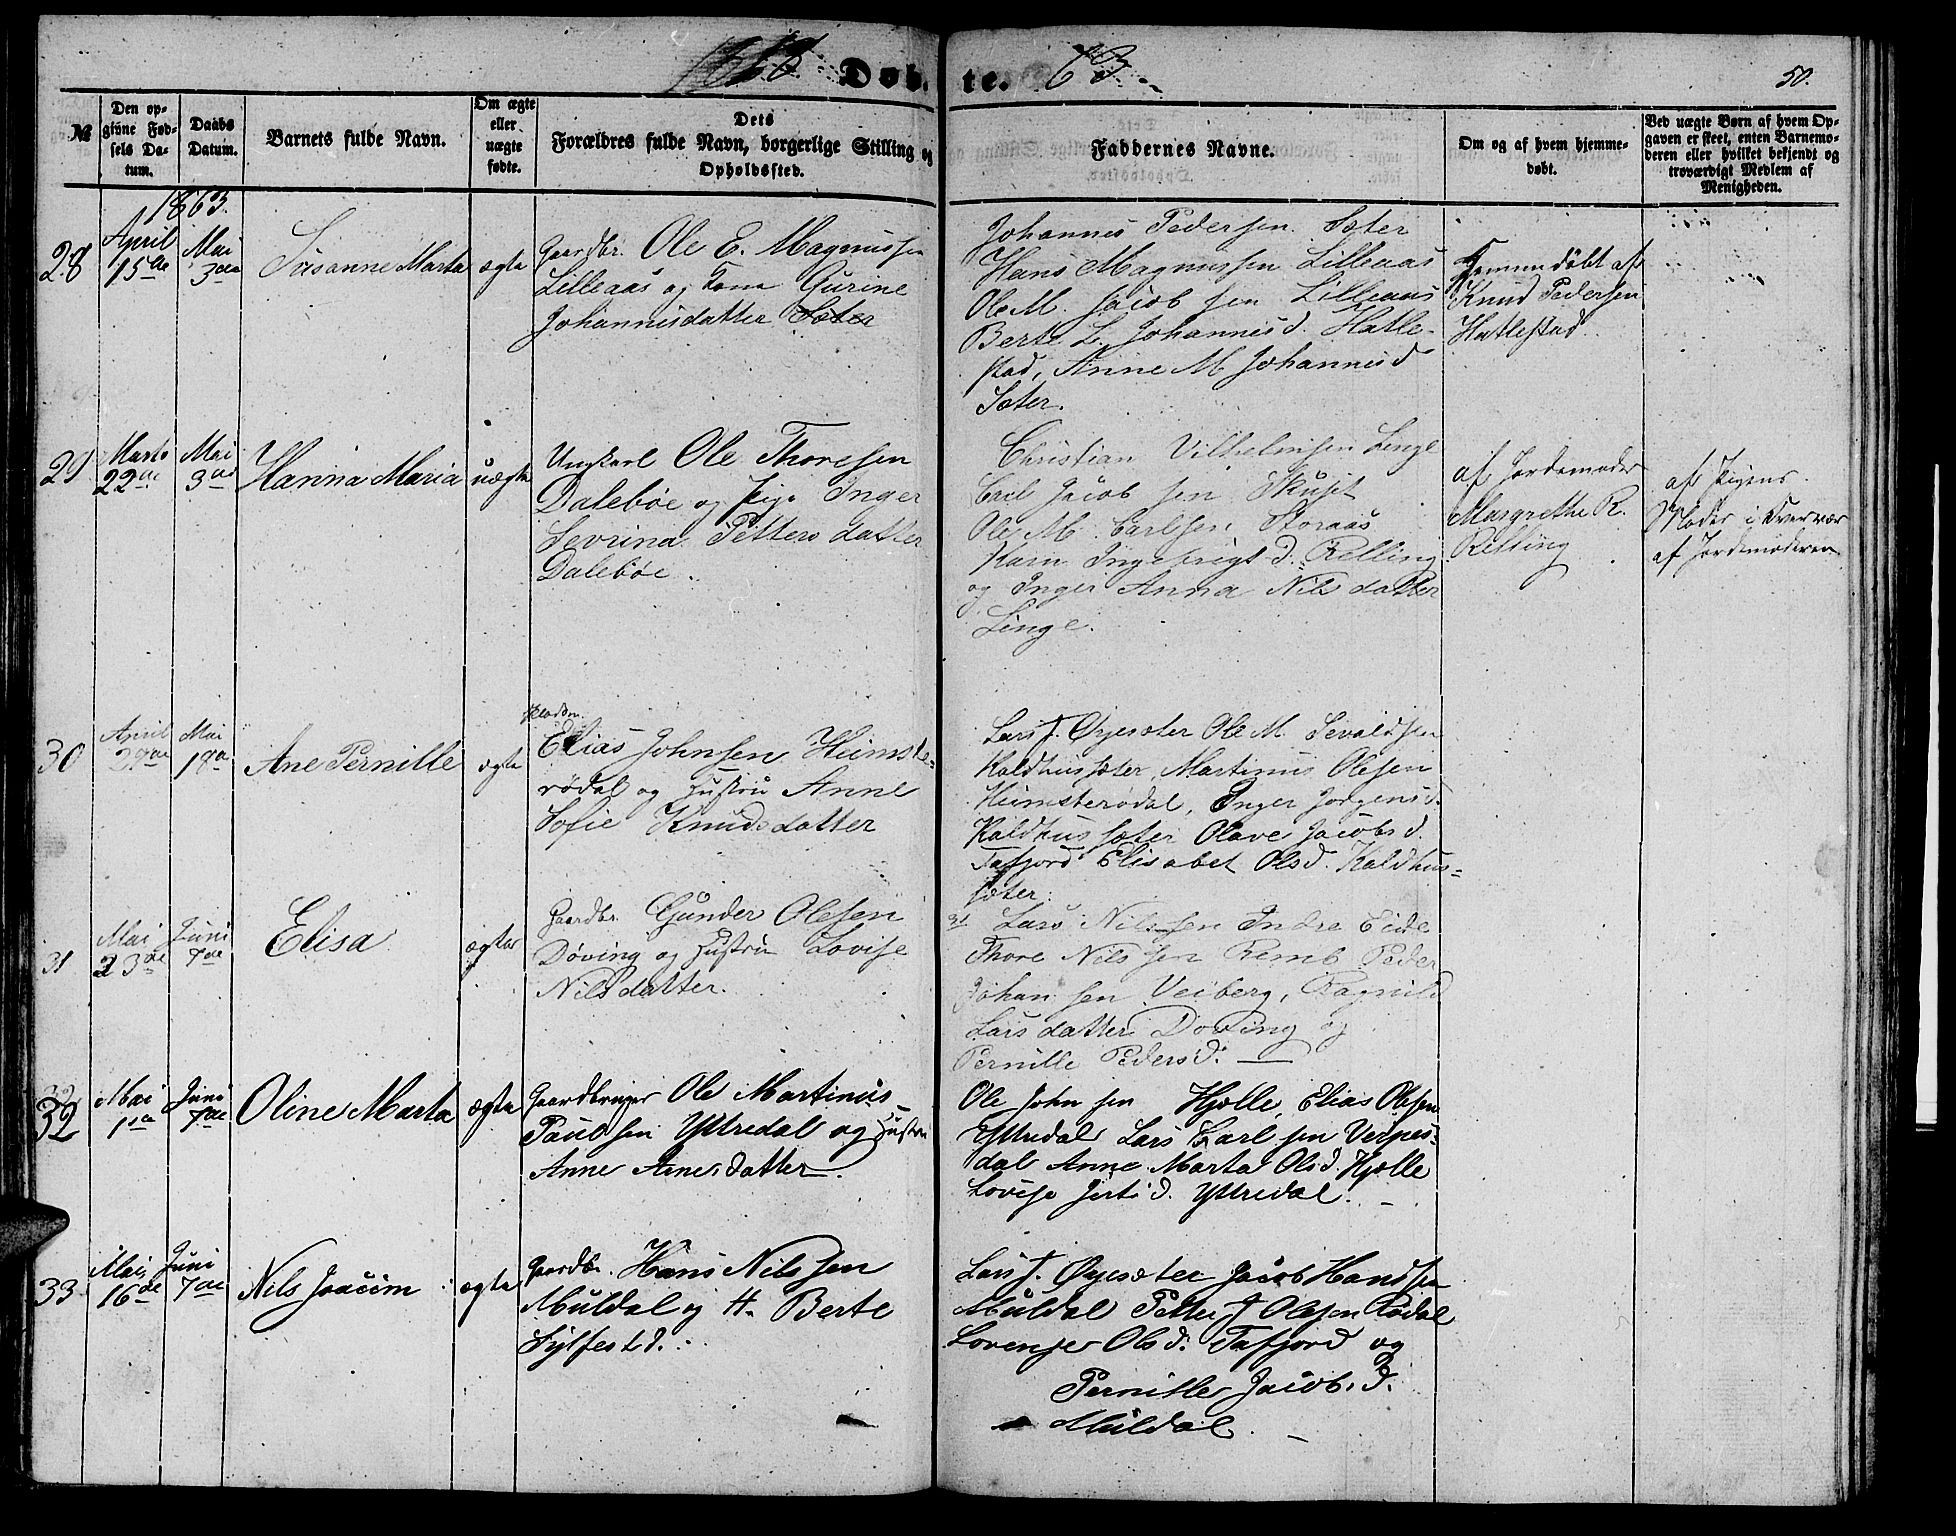 1863 Døb-te. 63
50.
№
Den op-
givne Fød-
sels Da-
tum.
Daabs
Datum.
Barnets fulde Navn.
Om ægte
eller
uægte
fødte.
Dets
Forældres fulde Navn, borgerlige Stilling og
Opholdssted.
Faddernes Navne.
Om og af hvem hjemme-
døbt.
Ved uægte Børn af hvem Op-
gaven er skeet, enten Barnemo-
deren eller hvilket bekjendt og
troværdigt Medlem af
Menigheden.
1863.
28
April
15de
Mai
3die
Susanne Marta
ægte
Gaardbr. Ole E. Magnussen
Lilleaas og Kone Gurine
Johannisdatter Sæter
Johannes Pedersen Sæter
Hans Magnussen Lilleaas
Ole M. Jacobsen Lilleaas
Berte L. Johannisd. Hatle-
stad, Anne M Johannisd
Sæter.
Hjemmedøbt af
Knud Pedersen
Hatlestad
29
Marts
22de
Mai
3die
Hanna Maria
uægte
Ungkarl Ole Thoresen
Dalebøe og Pige Inger
Sevrina Pettersdatter
Dalebøe.
Christian Vilhelmsen Linge
Carl Jacobsen
Ole M. Carlsen Storaas
Karn Ingebrigtd. Relling
og Inger Anna Nilsdatter
Linge.
af Jordemoder
Margrethe R.
Relling
af Pigens
Moder i Nærvær
af Jordemoderen
30
April
Mai
Ane Pernille
ægte
Elias Johnsen Heimste-
rødal og Hustru Anne
Sofie Knudsdatter
Lars J. Øyesæter Ole M. Sevaldsen
Kaldhussæter, Martinus Olesen
Heimsterødal, Inger Jørgensd.
Kaldhussæter Olave Jacobsd.
Tafjord Elisabet Olsd. Kaldhus-
sæter.
31
Mai
23de
Juni
7de
Elisa
ægte
Gaardbr. Gunder Olesen
Døving og Hustru Lovise
Nilsdatter.
31
Lars Nilssen Indre Eide
Thore Nilssen Remb Peder
Johansen Veiberg, Ragnild
Larsdatter Døving og
Pernille Pedersd. —
32
32
Mai
1ste
Juni
7de
Oline Marta
ægte
Gaardbruger Ole Martinus
Paulsen Yttredal og Hustru
Anne Arnesdatter.
Ole Johnsen Hjelle, Elias Olesen
Yttredal Lars Carlsen Verpes-
dal Anne Marta Olsd. Hjelle
Lovise d. Yttredal.
33
Mai
16de
Juni
7de
Nils Joacim
ægte
Gaardbr. Hans Nilssen
Muldal og H. Berte
Sylfestd.
Lars J. Øyesæter Jacob Handsen
Muldal Petter J Olesen Rødal
Lovense Olsd. Tafjord og
Pernille Jacobsd.
Muldal.